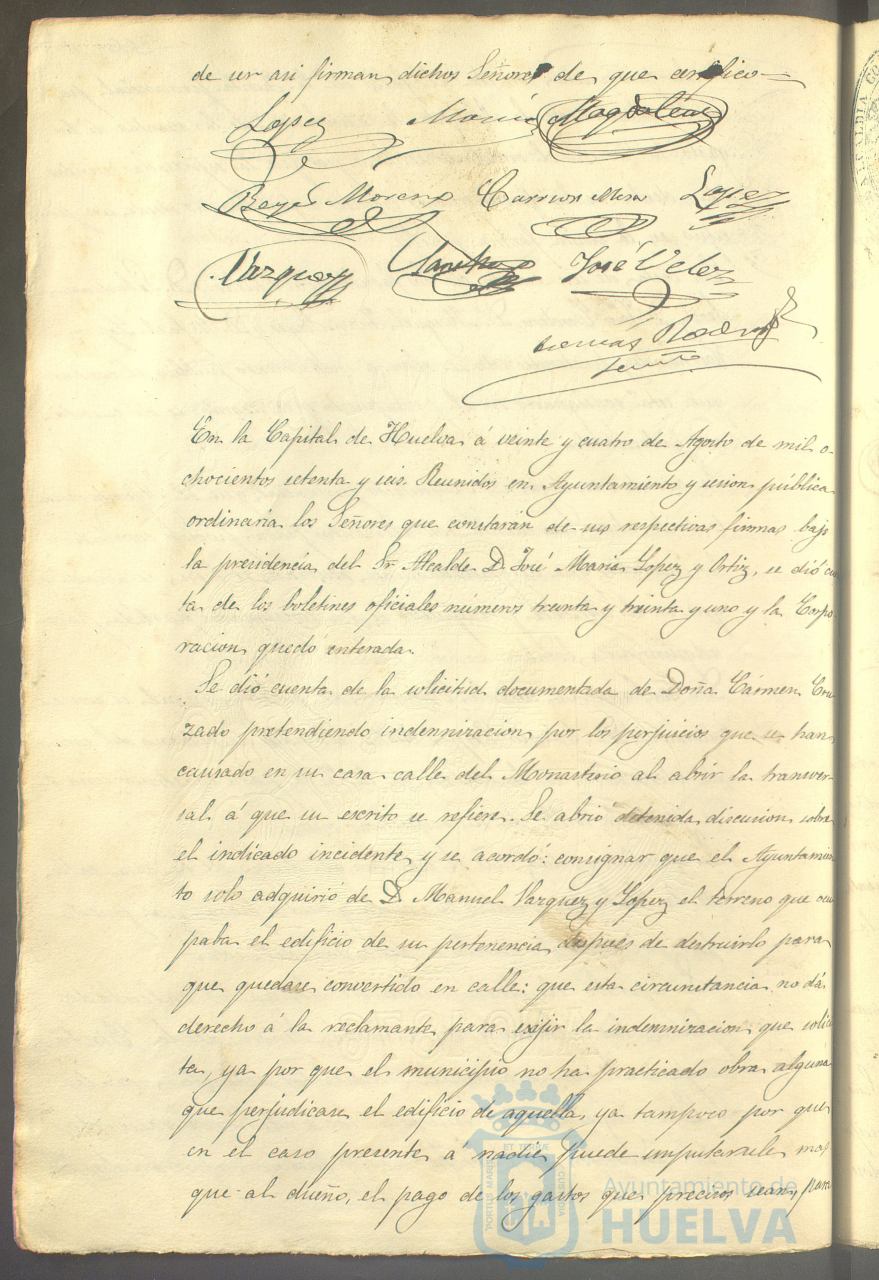 de ser asi firman dichos Señores de que certifico
Lopez Maria Magdalena
Reyes Moreno Carrion Mora Lopez
Vazquez Sanchez José Velez
Tomás
En la Capital de Huelva á veinte y cuatro de Agosto de mil o-
chocientos setenta y seis. Reunidos en Ayuntamiento y sesion pública
ordinaria los Señores que constarán de sus respectivas firmas bajo
la presidencia del Sr. Alcalde D. José Maria Lopez y Ortiz, se dió cuen
ta de los boletines oficiales números treinta y treinta y uno y la Corpo-
racion quedó enterada.
Se dió cuenta de la solicitud documentada de Doña Cármen Cru
zado pretendiendo indemnizacion por los perjuicios que se han
causado en su casa calle del Monasterio al abrir la transver-
sal á que su escrito se refiere. Se abrió detenida discusion sobre
el indicado incidente y se acordó: consignar que el Ayuntamien
to solo adquirió de D. Manuel Vazquez y Lopez el terreno que ocu
paba el edificio de su pertenencia despues de destruirlo para
que quedase convertido en calle: que esta circunstancia no dá
derecho á la reclamante para exijir la indemnizacion que solici
ta, ya por que el municipio no ha practicado obra alguna
que perjudicase el edificio de aquella, ya tampoco por que
en el caso presente a nadie puede imputarsele mas
que al dueño, el pago de los gastos que precisos sean, para
PORTUS MARIS ET TERRAE CUSTODIA
Ayuntamiento de
HUELVA
ALCALDIA CO